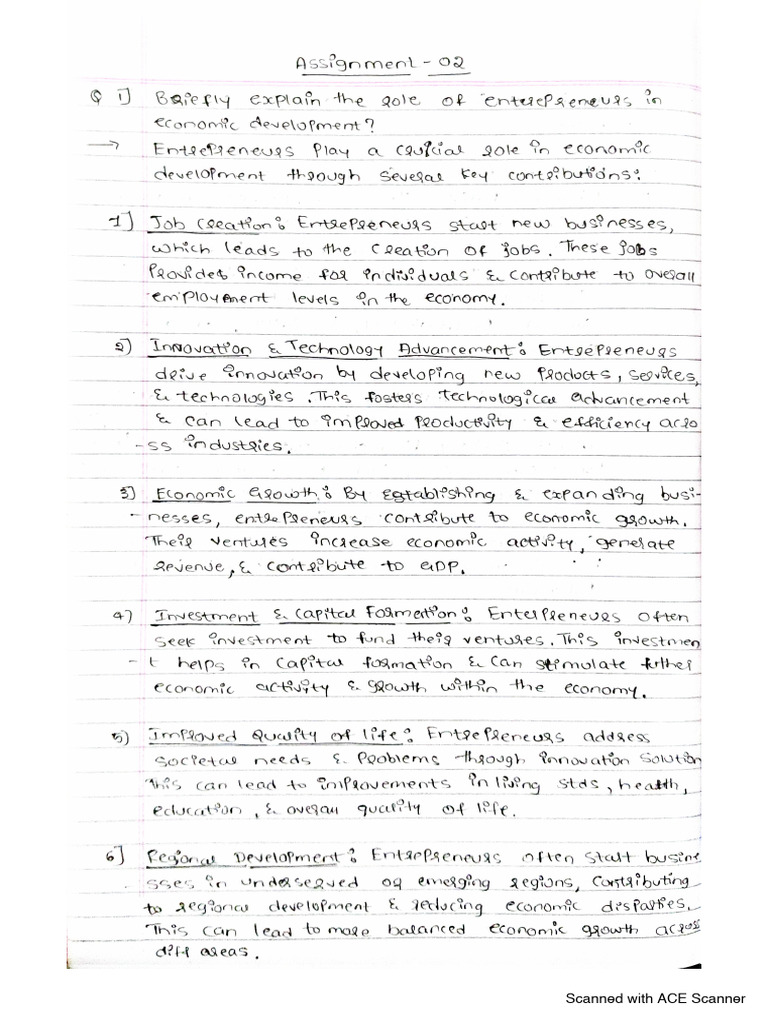 Assignment - 02
Q 1] Briefly explain the role of enterepreneurs in
economic development?
→ Entrepreneurs play a crucial role in economic
development through several key contributions:
1] Job Creation: Entrepreneurs start new businesses,
which leads to the creation of jobs. These jobs
provides income for individuals & contribute to overall
employment levels in the economy.
2] Innovation & Technology Advancement: Entrepreneurs
drive innovation by developing new products, services,
& technologies. This fosters technological advancement
& can lead to improved productivity & efficiency acro
-ss industries.
3] Economic Growth: By establishing & expanding busi-
-nesses, entrepreneurs contribute to economic growth.
Their ventures increase economic activity, generate
revenue, & contribute to GDP.
4] Investment & Capital Formation: Enterpreneurs often
seek investment to fund their ventures. This investmen
-t helps in capital formation & can stimulate further
economic activity & growth within the economy.
5] Improved Quality of life: Entrepreneurs address
societal needs & problems through innovation solution
This can lead to improvements in living stds, health,
education, & overall quality of life.
6] Regional Development: Entrepreneurs often start busine
-sses in underserved or emerging regions, contributing
to regional development & reducing economic disparties.
This can lead to more balanced economic growth across
diff areas.
Scanned with ACE Scanner